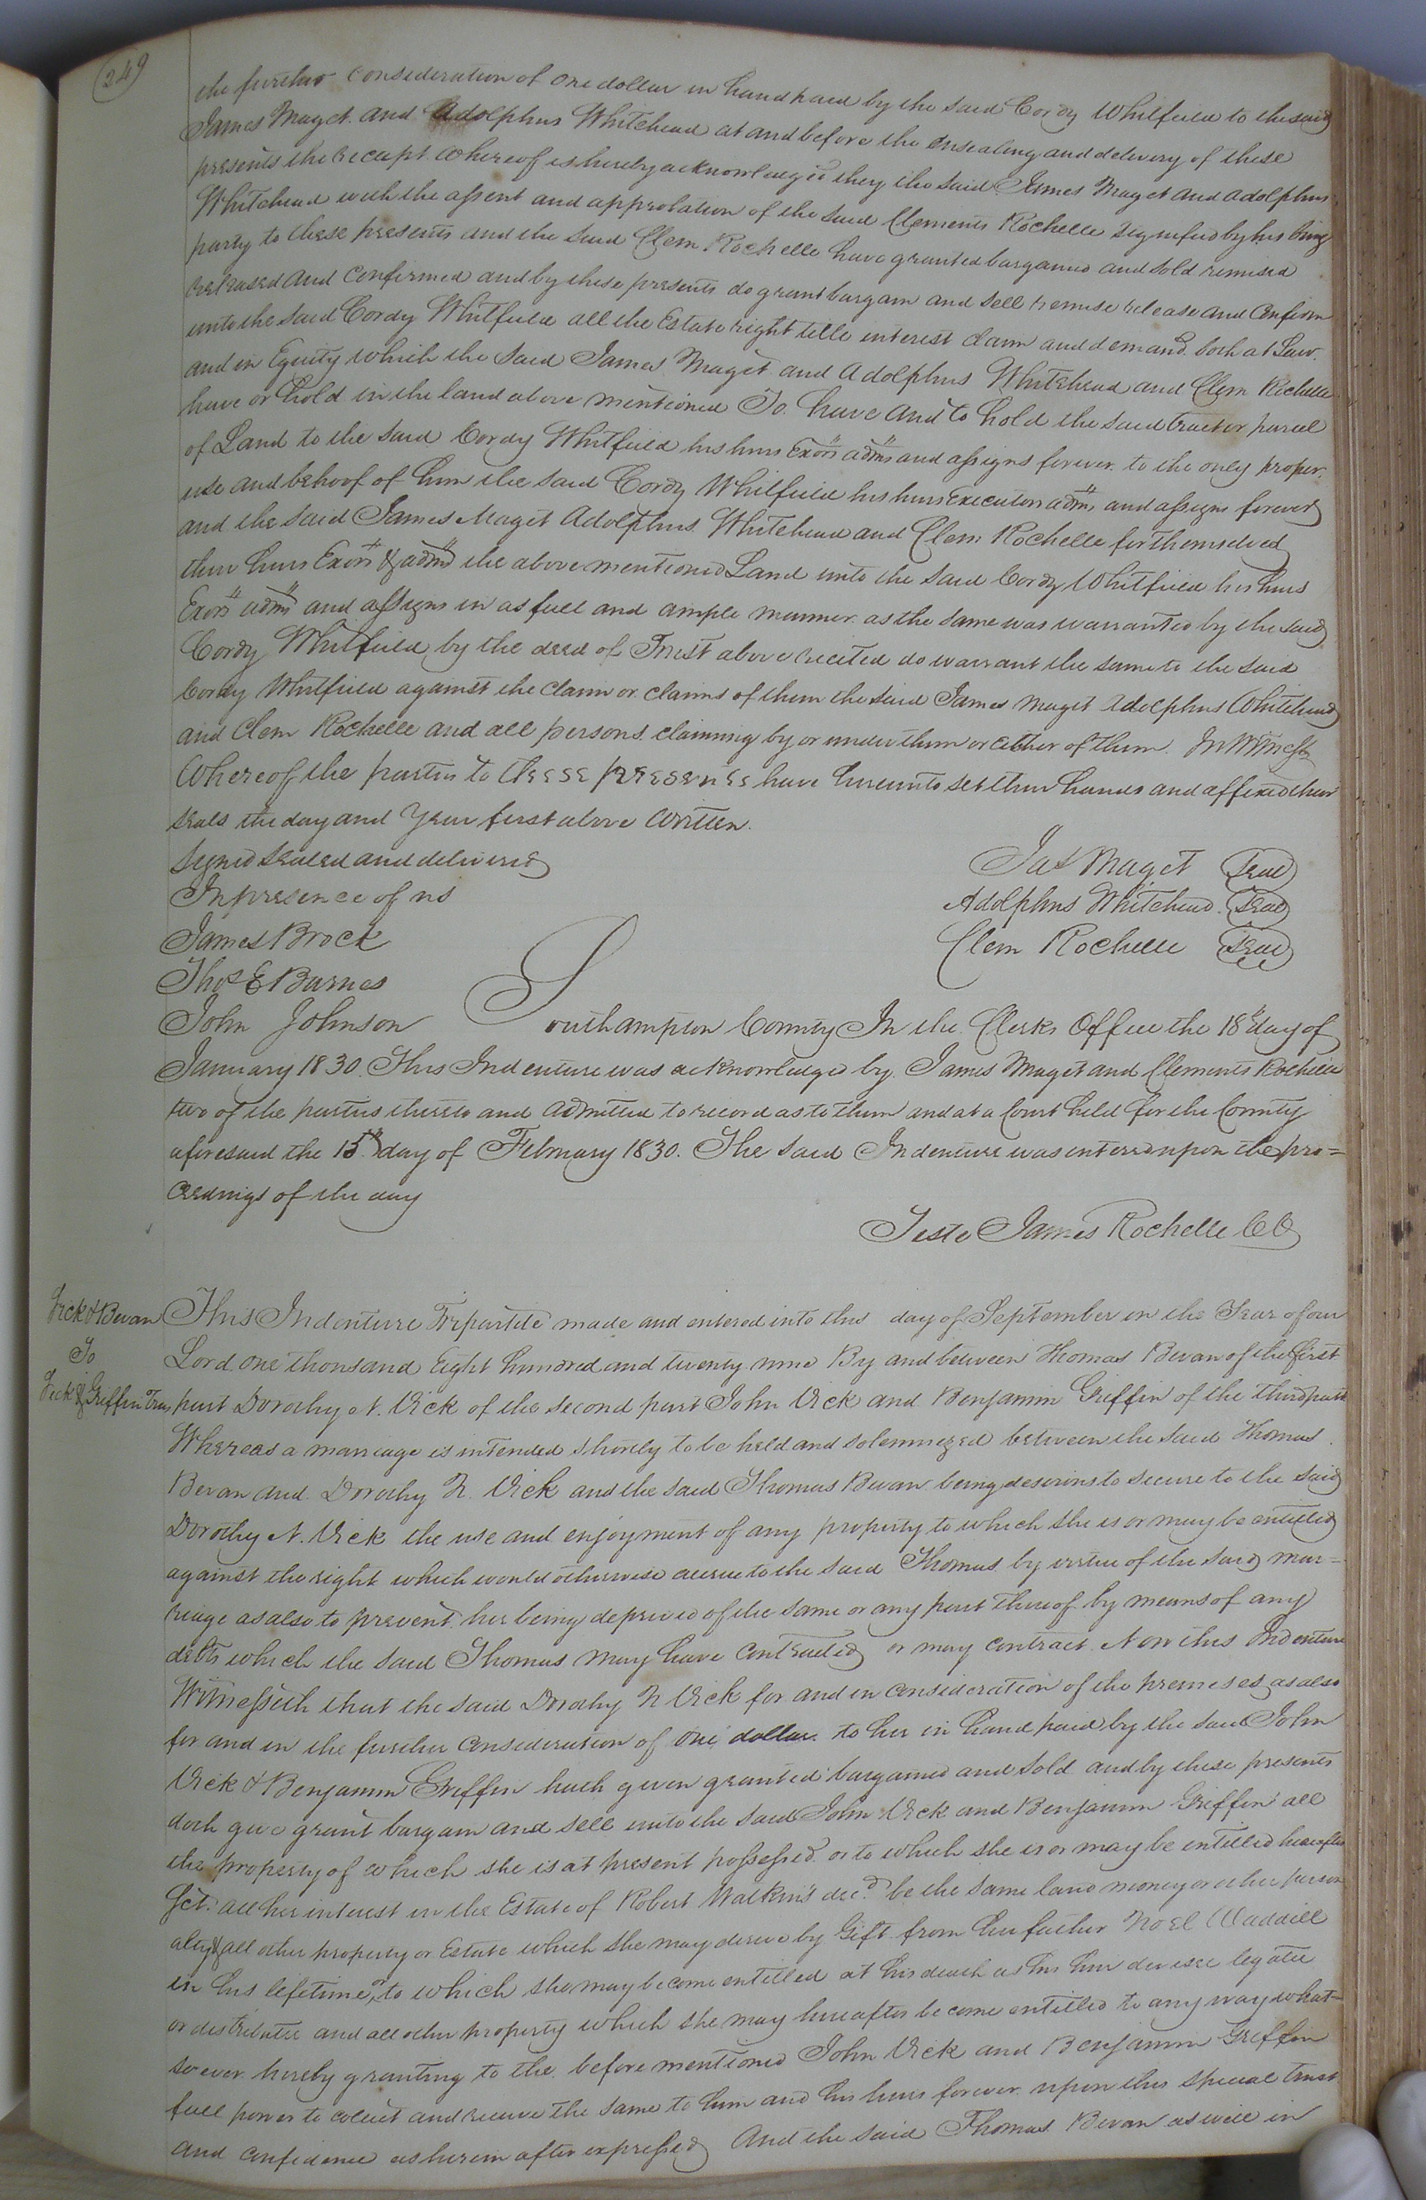 249
the further consideration of one dollar in hand paid by the said Cordy Whitfield to the said
James Maget and Adolphus Whitehead at and before the ensealing and delivery of these
presents the receipt whereof is hereby acknowledged they the said James Maget and Adolphus
Whitehead with the assent and approbation of the said Clements Rochelle signified by his being
party to these presents and the said Clem Rochelle have granted bargained and sold remised
released and confirmed and by these presents do grant bargain and sell remise release and confirm
unto the said Cordy Whitfield all the Estate right title interest claim and demand both at Law
and in Equity which the said James Maget and Adolphus Whitehead and Clem Rochelle
have or hold in the land above mentioned To have and to hold the said tract or parcel
of Land to the said Cordy Whitfield his heirs Exors adms and assigns forever to the only proper
use and behoof of him the said Cordy Whitfield his heirs Executors adms and assigns forever
and the said James Maget Adolphus Whitehead and Clem Rochelle for themselves
their heirs Exors & adms the above mentioned Land unto the said Cordy Whitfield his heirs
Exors adms and assigns in as full and ample manner as the same was warranted by the said
Cordy Whitfield by the deed of Trust above recited do warrant the same to the said
Cordy Whitfield against the claim or claims of them the said James Maget Adolphus Whitehead
and Clem Rochelle and all persons claiming by or under them or either of them. In Witness
Whereof the parties to these presents have hereunto set their hands and affixed their
seals the day and Year first above written.
Signed sealed and delivered
In presence of us
James Brock
Thos E Barnes
John Johnson
Jas Maget Seal
Adolphus Whitehead Seal
Clem Rochelle Seal
Southampton County In the Clerks Office the 18th day of
January 1830. This Indenture was acknowledged by James Maget and Clements Rochelle
two of the parties thereto and admitted to record as to them and at a Court held for the County
aforesaid the 15th day of February 1830. The said Indenture was entered upon the pro=
ceedings of the day
Teste James Rochelle CC
Vick & Bevan
To
Vick & Griffin Trus
This Indenture Tripartite made and entered into this day of September in the Year of our
Lord one thousand Eight hundred and twenty nine By and between Thomas Bevan of the first
part Dorothy N. Vick of the second part John Vick and Benjamin Griffin of the third part
Whereas a marriage is intended shortly to be held and solemnized between the said Thomas
Bevan and Dorothy N. Vick and the said Thomas Bevan being desirous to secure to the said
Dorothy N. Vick the use and enjoyment of any property to which she is or may be entitled
against the right which would otherwise accrue to the said Thomas by virtue of the said mar=
riage as also to prevent her being deprived of the same or any part thereof by means of any
debts which the said Thomas may have contracted or may contract. Now this Indenture
Witnesseth that the said Dorothy N Vick for and in consideration of the premises as also
for and in the further consideration of one dollar to her in hand paid by the said John
Vick & Benjamin Griffin hath given granted bargained and sold and by these presents
doth give grant bargain and sell unto the said John Vick and Benjamin Griffin all
the property of which she is at present possessed or to which she is or may be entitled hereafter
all her interest in the Estate of Robert Watkins decd be the same land money or other person
alty & all other property or Estate which she may derive by Gift from her father Noel Waddill
in his lifetime, to which she may become entitled at his death as his heir devisee legatee
or distributee and all other property which she may hereafter become entitled to any way what=
soever hereby granting to the before mentioned John Vick and Benjamin Griffin
full power to collect and receive the same to him and his heirs forever upon this special trust
and confidence as herein after expressed And the said Thomas Bevan as well in